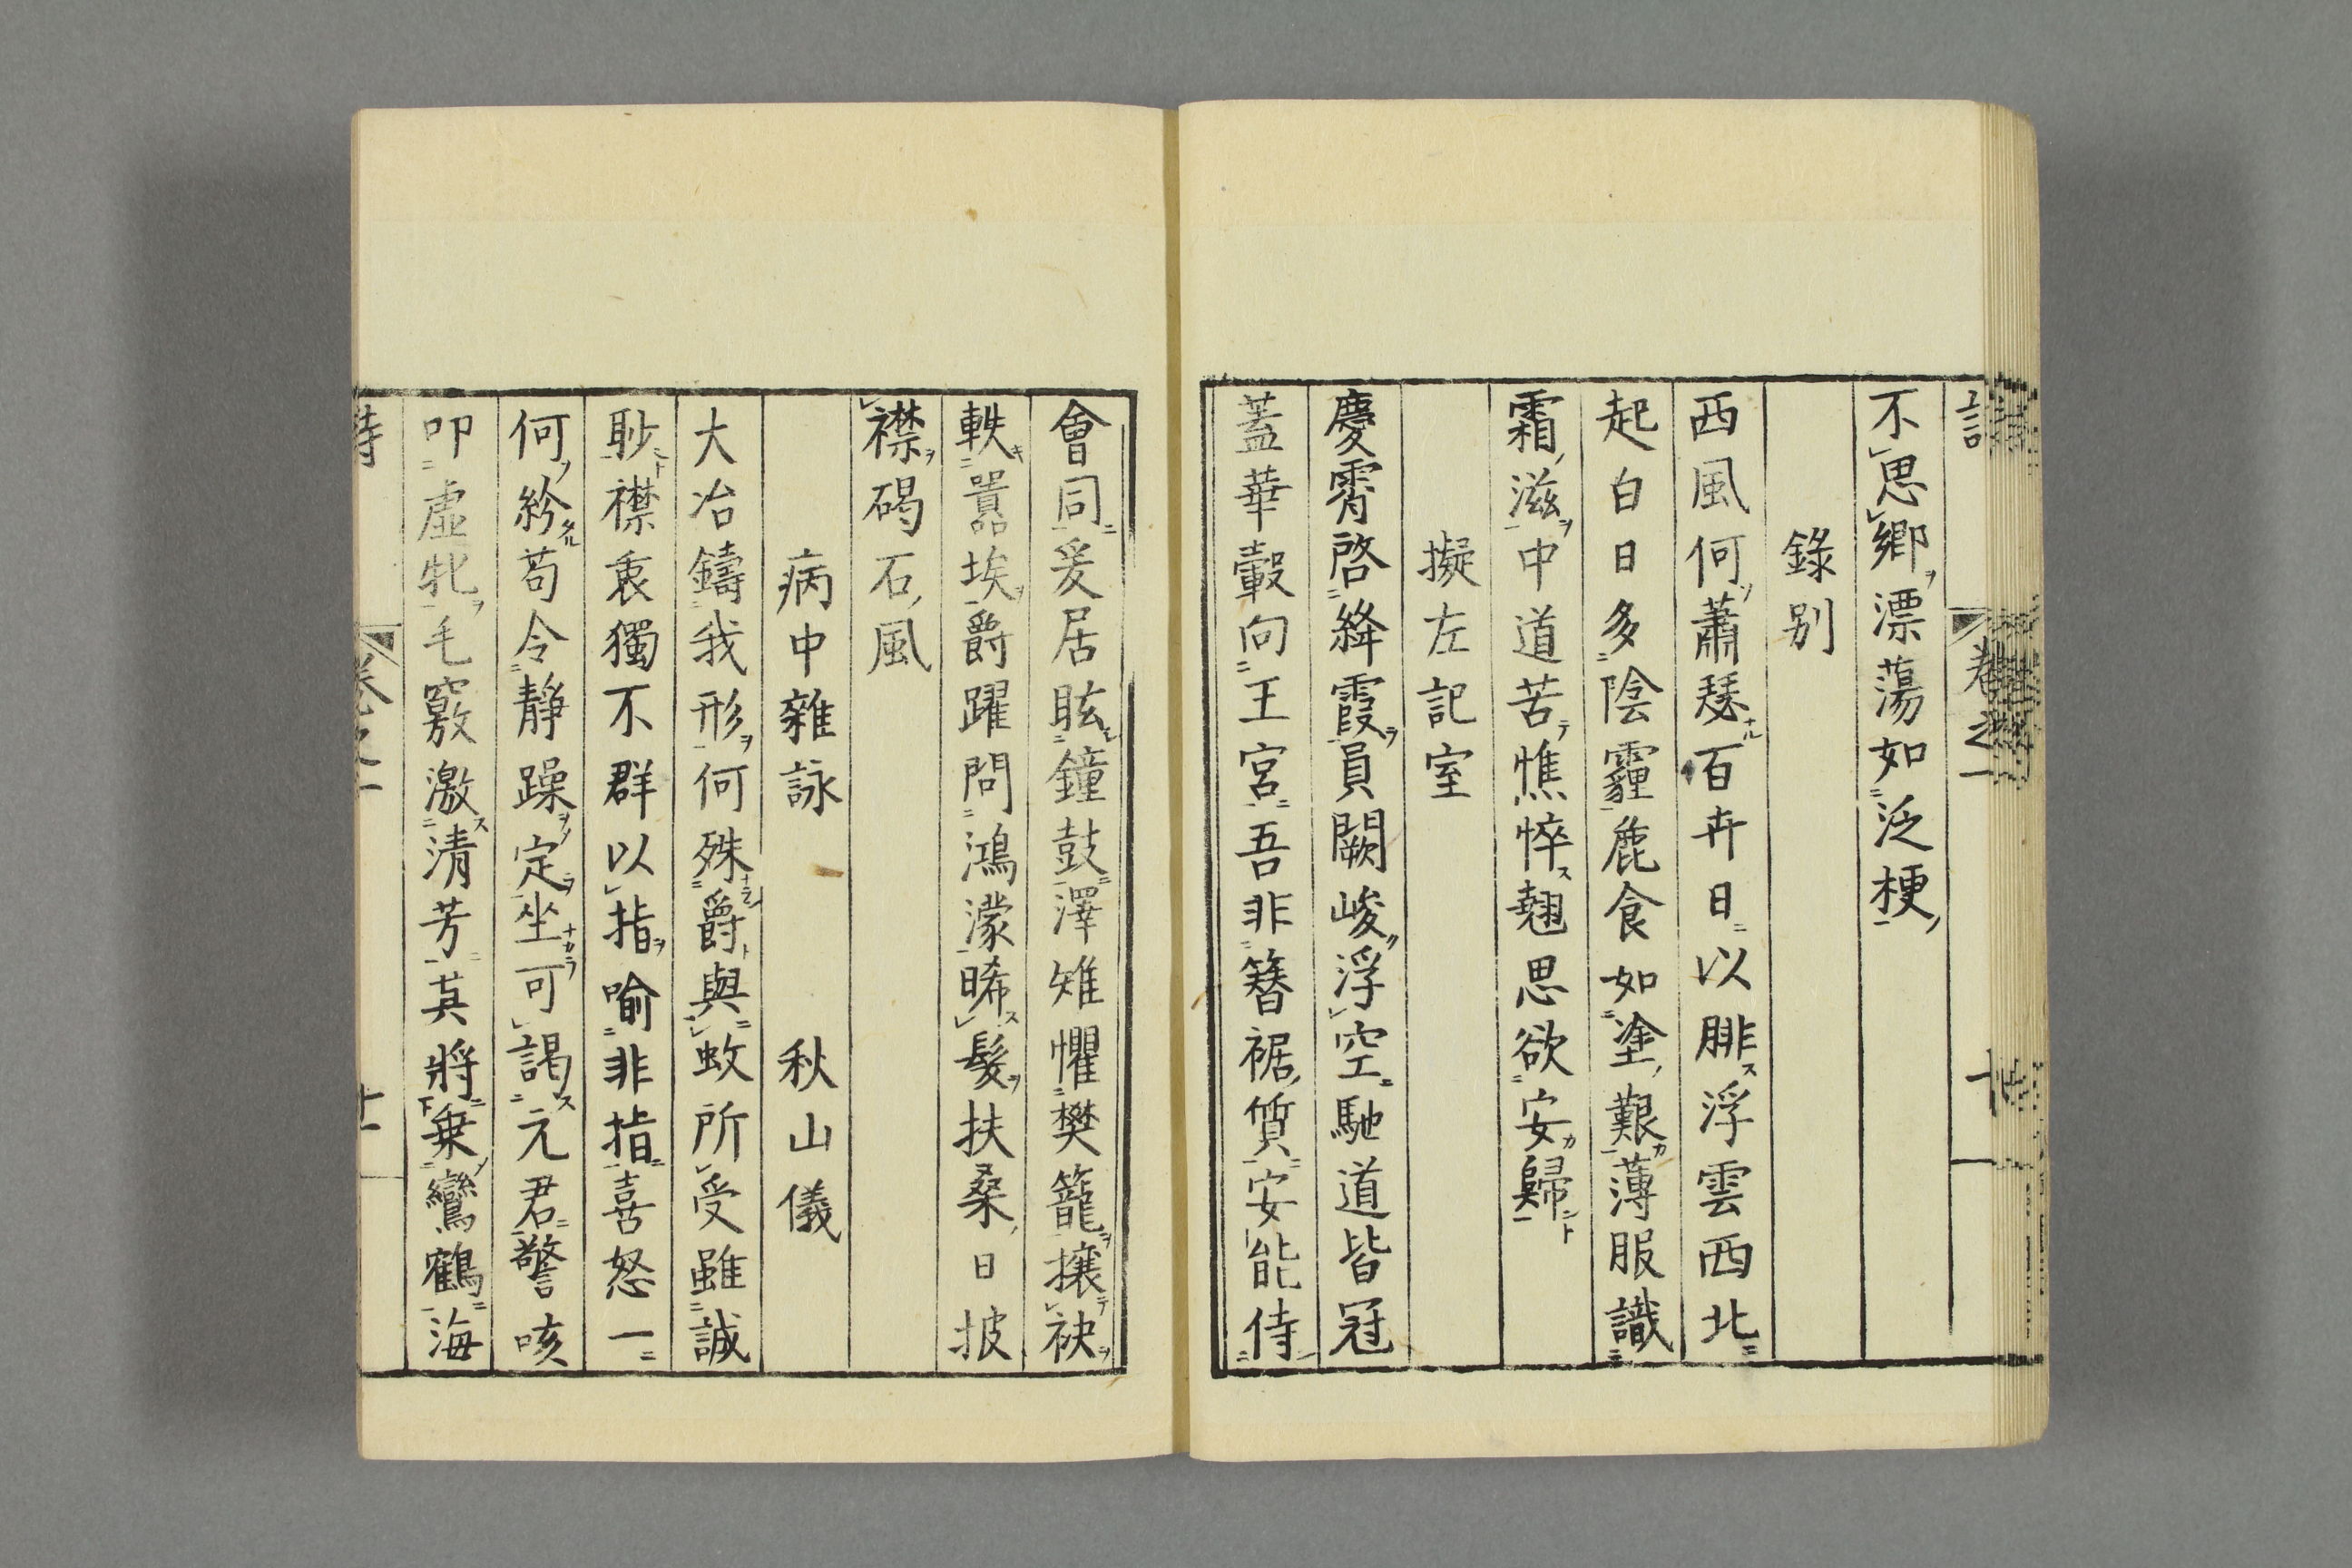 不思鄉漂蕩如泛梗
錄別
西風何蕭瑟百卉日以腓浮雲西北
起白日多陰霾鹿食如塗艱薄服識
霜滋中道苦憔悴翹思欲安歸
擬左記室
慶霄啓絳霞員闕峻浮空馳道皆冠
蓋華轂向王宮吾非簪裾質安能侍
會同爰居眩鐘鼓澤雉懼樊籠攘袂
軼囂埃爵躍問鴻濛晞髮扶桑日披
襟碣石風
病中雜詠 秋山儀
大冶鑄我形何殊爵與蚊所受雖誠
眇襟衷獨不群以指喻非指喜怒一
何紛苟令靜躁定坐可謁元君警咳
叩虛牝毛竅激清芳其將乗鸞鶴海